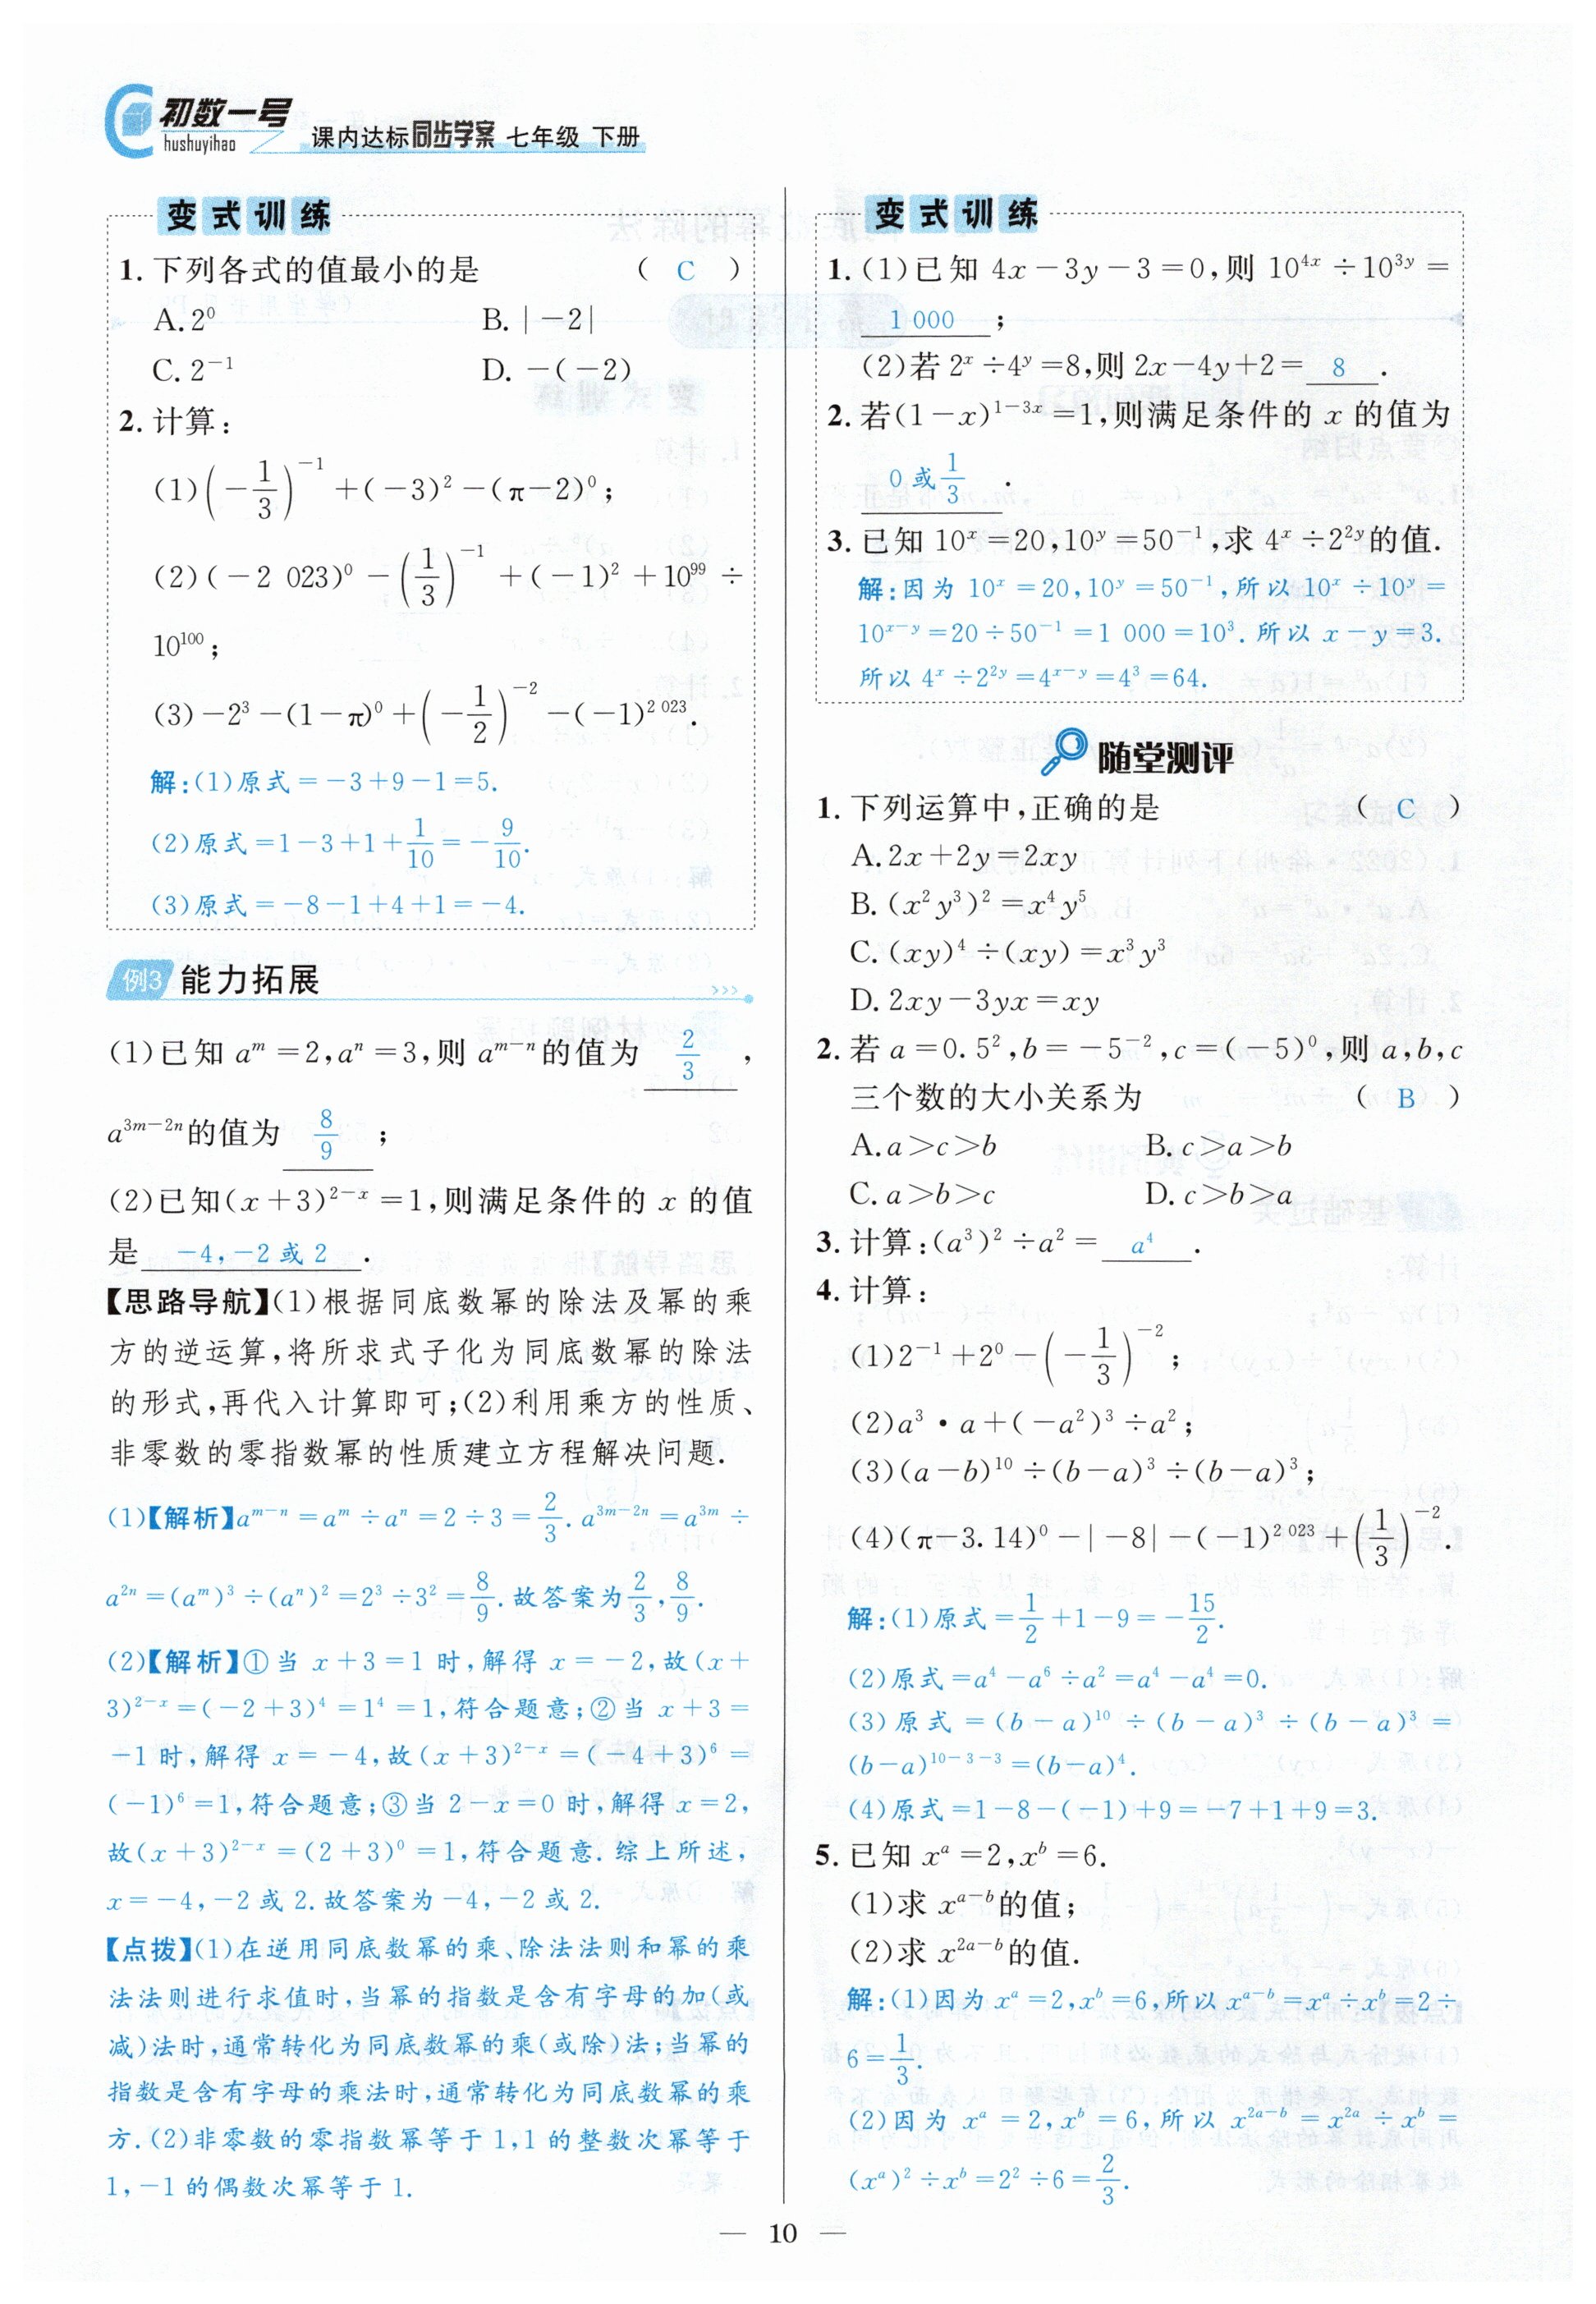 初数一号
hushuyihao
课内达标同步学案 七年级 下册
变式训练
1. 下列各式的值最小的是 ( C )
A. 2⁰ B. |-2|
C. 2⁻¹ D. -(-2)
2. 计算:
(1)(-1/3)⁻¹+(-3)²-(π-2)⁰;
(2)(-2 023)⁰-(1/3)⁻¹+(-1)²+10⁹⁹÷
10¹⁰⁰;
(3)-2³-(1-π)⁰+(-1/2)⁻²-(-1)^{2 023}.
解:(1)原式=-3+9-1=5.
(2)原式=1-3+1+1/10=-9/10.
(3)原式=-8-1+4+1=-4.
例3 能力拓展
(1)已知 aᵐ=2,aⁿ=3,则 a^{m-n}的值为 2/3 ,
a^{3m-2n}的值为 8/9 ;
(2)已知(x+3)^{2-x}=1,则满足条件的 x 的值
是 -4,-2 或 2 .
【思路导航】(1)根据同底数幂的除法及幂的乘
方的逆运算,将所求式子化为同底数幂的除法
的形式,再代入计算即可;(2)利用乘方的性质、
非零数的零指数幂的性质建立方程解决问题.
(1)【解析】a^{m-n}=aᵐ÷aⁿ=2÷3=2/3. a^{3m-2n}=a^{3m}÷
a^{2n}=(aᵐ)³÷(aⁿ)²=2³÷3²=8/9. 故答案为2/3,8/9.
(2)【解析】①当 x+3=1 时,解得 x=-2,故(x+
3)^{2-x}=(-2+3)⁴=1⁴=1,符合题意;②当 x+3=
-1 时,解得 x=-4,故(x+3)^{2-x}=(-4+3)⁶=
(-1)⁶=1,符合题意;③当 2-x=0 时,解得 x=2,
故(x+3)^{2-x}=(2+3)⁰=1,符合题意. 综上所述,
x=-4,-2 或 2. 故答案为-4,-2 或 2.
【点拨】(1)在逆用同底数幂的乘、除法法则和幂的乘
法法则进行求值时,当幂的指数是含有字母的加(或
减)法时,通常转化为同底数幂的乘(或除)法;当幂的
指数是含有字母的乘法时,通常转化为同底数幂的乘
方. (2)非零数的零指数幂等于 1,1 的整数次幂等于
1,-1 的偶数次幂等于 1.
变式训练
1. (1)已知 4x-3y-3=0,则 10^{4x}÷10^{3y}=
1 000 ;
(2)若 2ˣ÷4ʸ=8,则 2x-4y+2= 8 .
2. 若(1-x)^{1-3x}=1,则满足条件的 x 的值为
0 或 1/3 .
3. 已知 10ˣ=20,10ʸ=50⁻¹,求 4ˣ÷2^{2y}的值.
解:因为 10ˣ=20,10ʸ=50⁻¹,所以 10ˣ÷10ʸ=
10^{x-y}=20÷50⁻¹=1 000=10³. 所以 x-y=3.
所以 4ˣ÷2^{2y}=4^{x-y}=4³=64.
随堂测评
1. 下列运算中,正确的是 ( C )
A. 2x+2y=2xy
B. (x²y³)²=x⁴y⁵
C. (xy)⁴÷(xy)=x³y³
D. 2xy-3yx=xy
2. 若 a=0.5²,b=-5⁻²,c=(-5)⁰,则 a,b,c
三个数的大小关系为 ( B )
A. a>c>b B. c>a>b
C. a>b>c D. c>b>a
3. 计算:(a³)²÷a²= a⁴ .
4. 计算:
(1)2⁻¹+2⁰-(-1/3)⁻²;
(2)a³·a+(-a²)³÷a²;
(3)(a-b)¹⁰÷(b-a)³÷(b-a)³;
(4)(π-3.14)⁰-|-8|-(-1)^{2 023}+(1/3)⁻².
解:(1)原式=1/2+1-9=-15/2.
(2)原式=a⁴-a⁶÷a²=a⁴-a⁴=0.
(3)原式=(b-a)¹⁰÷(b-a)³÷(b-a)³=
(b-a)^{10-3-3}=(b-a)⁴.
(4)原式=1-8-(-1)+9=-7+1+9=3.
5. 已知 xᵃ=2,xᵇ=6.
(1)求 x^{a-b}的值;
(2)求 x^{2a-b}的值.
解:(1)因为 xᵃ=2,xᵇ=6,所以 x^{a-b}=xᵃ÷xᵇ=2÷
6=1/3.
(2)因为 xᵃ=2,xᵇ=6,所以 x^{2a-b}=x^{2a}÷xᵇ=
(xᵃ)²÷xᵇ=2²÷6=2/3.
— 10 —